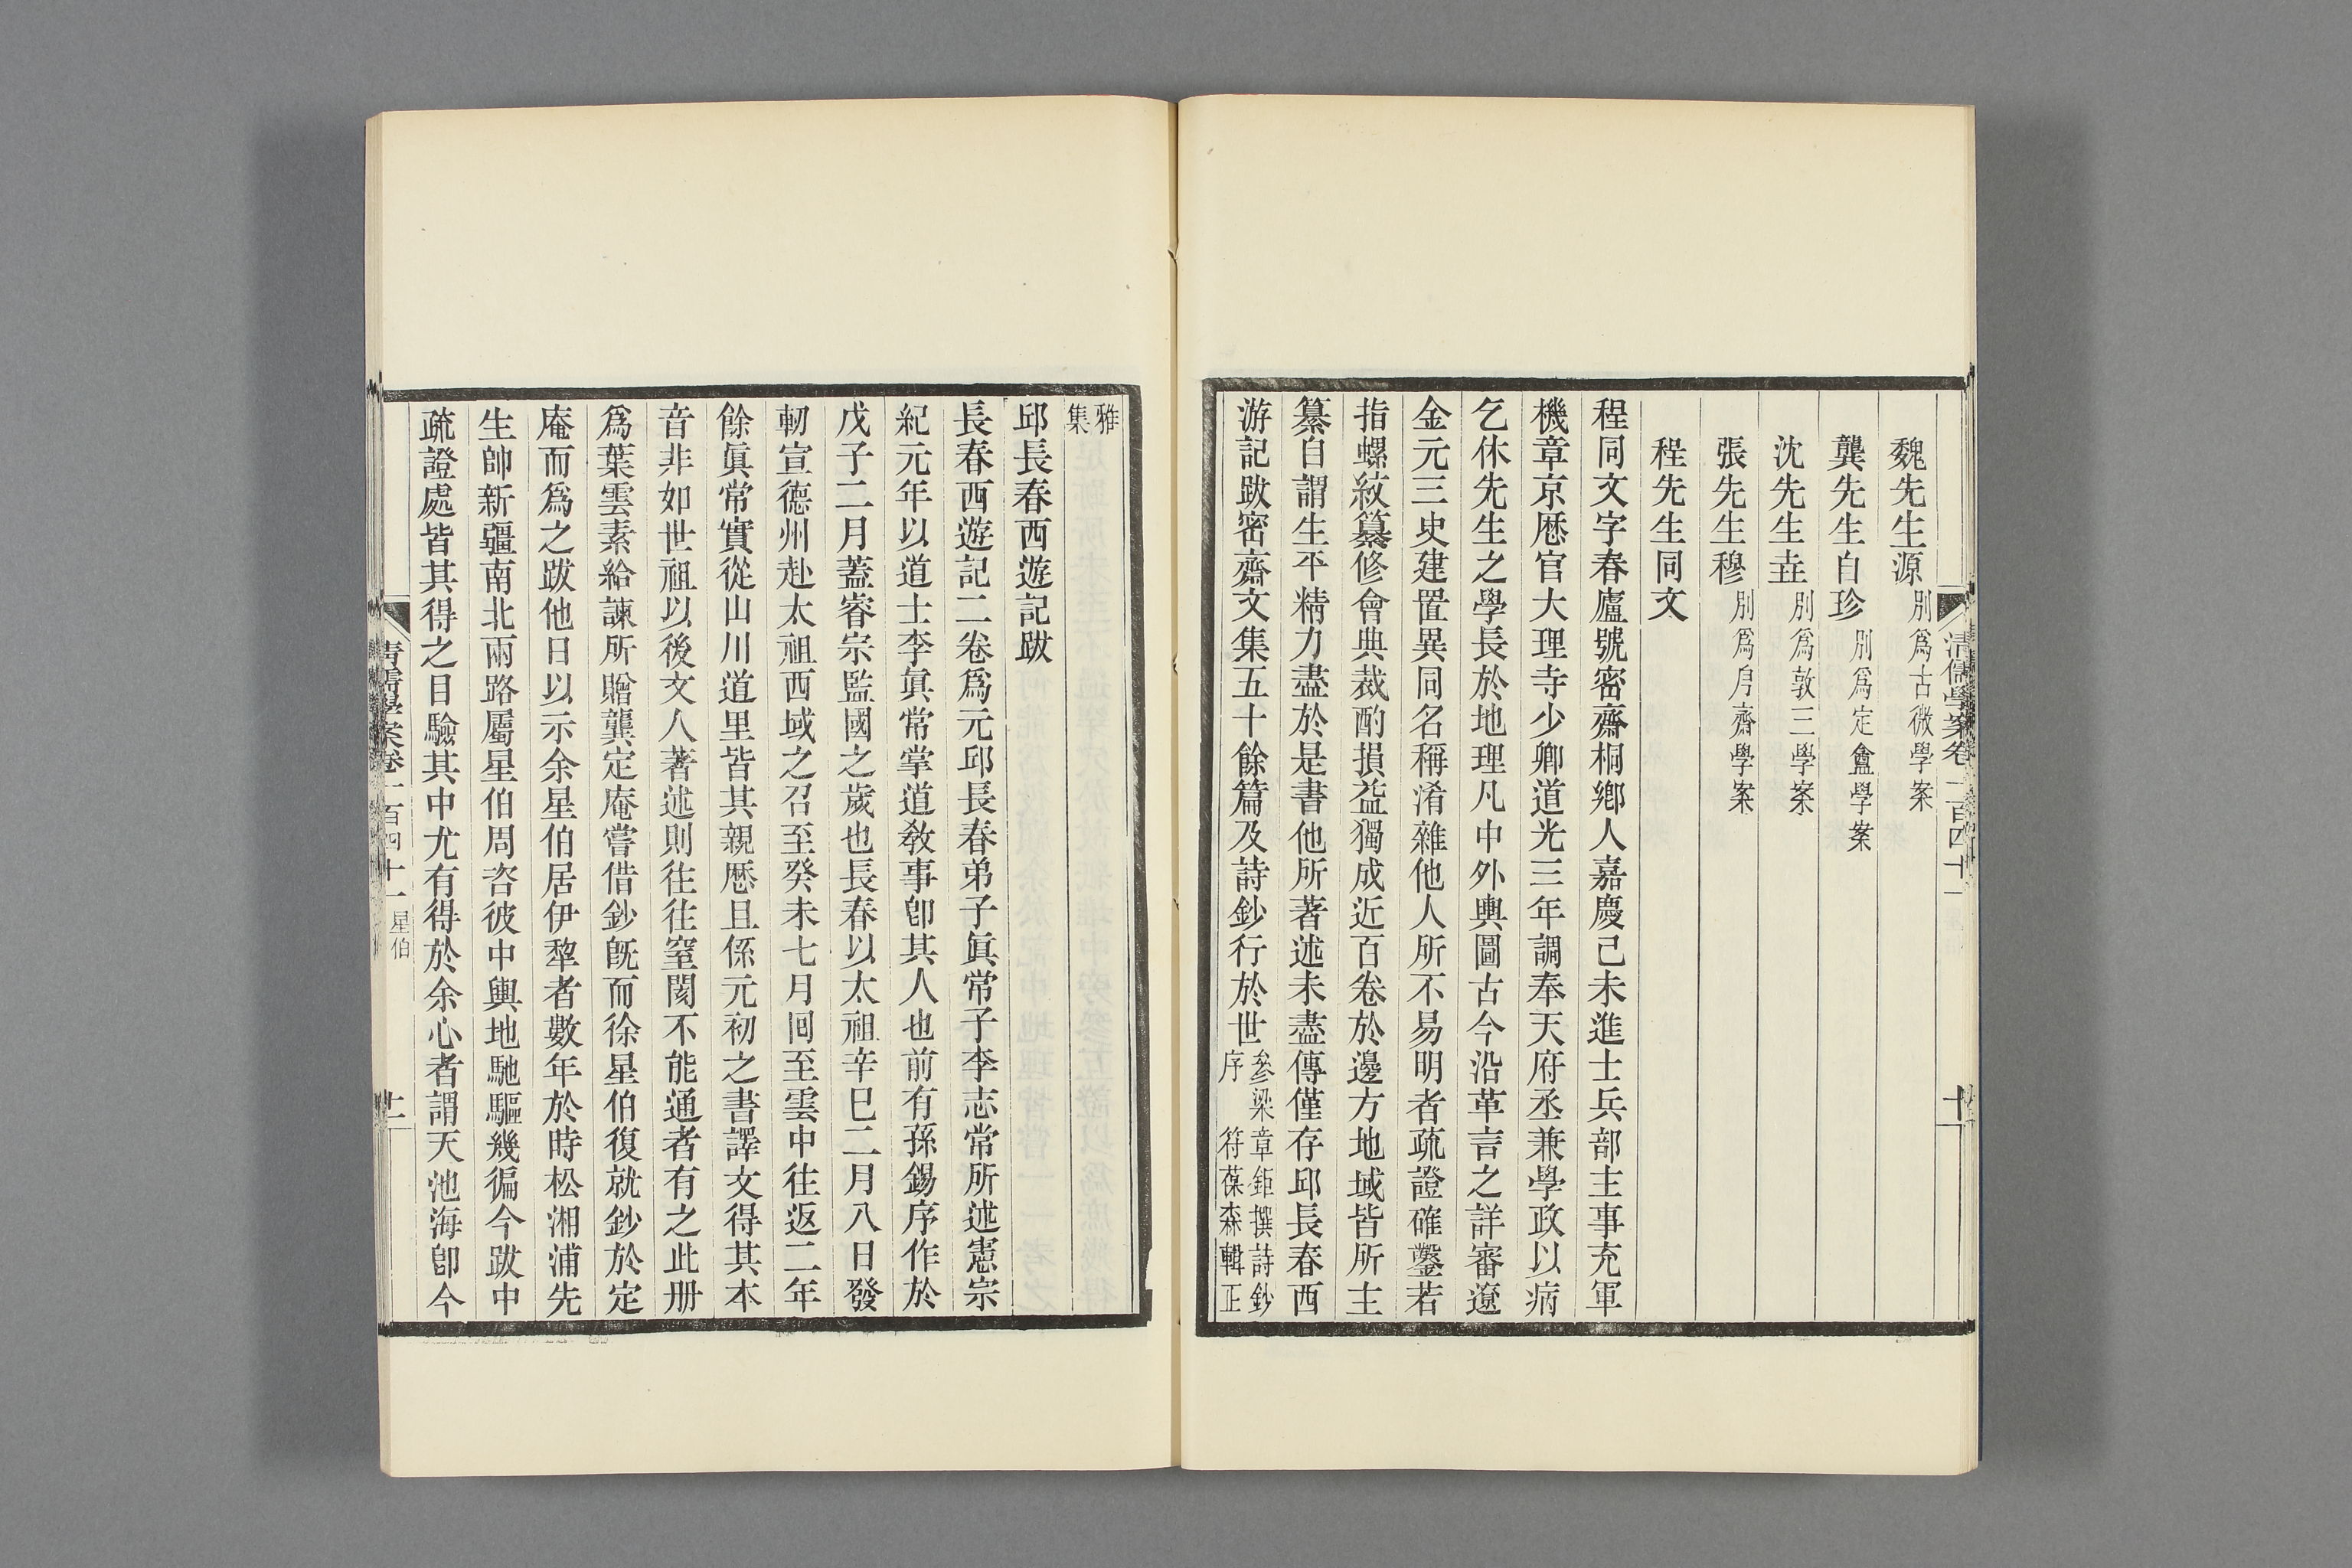 魏先生源別爲古微學案
龔先生自珍別爲定盦學案
沈先生垚別爲敦三學案
張先生穆別爲㐆齋學案
程先生同文
程同文字春廬號密齋桐鄉人嘉慶己未進士兵部主事充軍
機章京歷官大理寺少卿道光三年調奉天府丞兼學政以病
乞休先生之學長於地理凡中外輿圖古今沿革言之詳審遼
金元三史建置異同名稱淆雜他人所不易明者疏證確鑿若
指螺紋纂修會典裁酌損益獨成近百卷於邊方地域皆所主
纂自謂生平精力盡於是書他所著述未盡傳僅存邱長春西
游記跋密齋文集五十餘篇及詩鈔行於世參梁章鉅撰詩鈔序 符葆森輯正
雅集
邱長春西遊記跋
長春西遊記二卷爲元邱長春弟子眞常子李志常所述憲宗
紀元年以道士李眞常掌道敎事卽其人也前有孫錫序作於
戊子二月蓋睿宗監國之歲也長春以太祖辛巳二月八日發
軔宣德州赴太祖西域之召至癸未七月囘至雲中往返二年
餘眞常實從山川道里皆其親歷且係元初之書譯文得其本
音非如世祖以後文人著述則往往窒閡不能通者有之此册
爲葉雲素給諫所贈龔定庵嘗借鈔旣而徐星伯復就鈔於定
庵而爲之跋他日以示余星伯居伊犂者數年於時松湘浦先
生帥新疆南北兩路屬星伯周咨彼中輿地馳驅幾徧今跋中
疏證處皆其得之目驗其中尤有得於余心者謂天池海卽今
清儒學案卷一百四十一
十
清儒學案卷一百四十一 星伯
十二